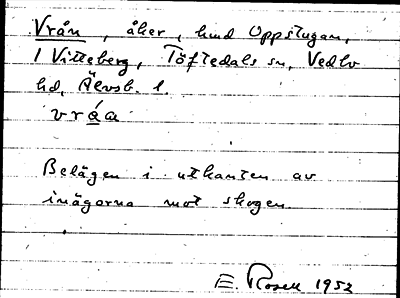 Vrån, åker, hmd Oppstugan,
1 Vitteberg, Töftedals sn, Vedbo
hd, Älvsb. l.
vráa
Belägen i utkanten av
inägorna mot skogen
E. Rosell 1952